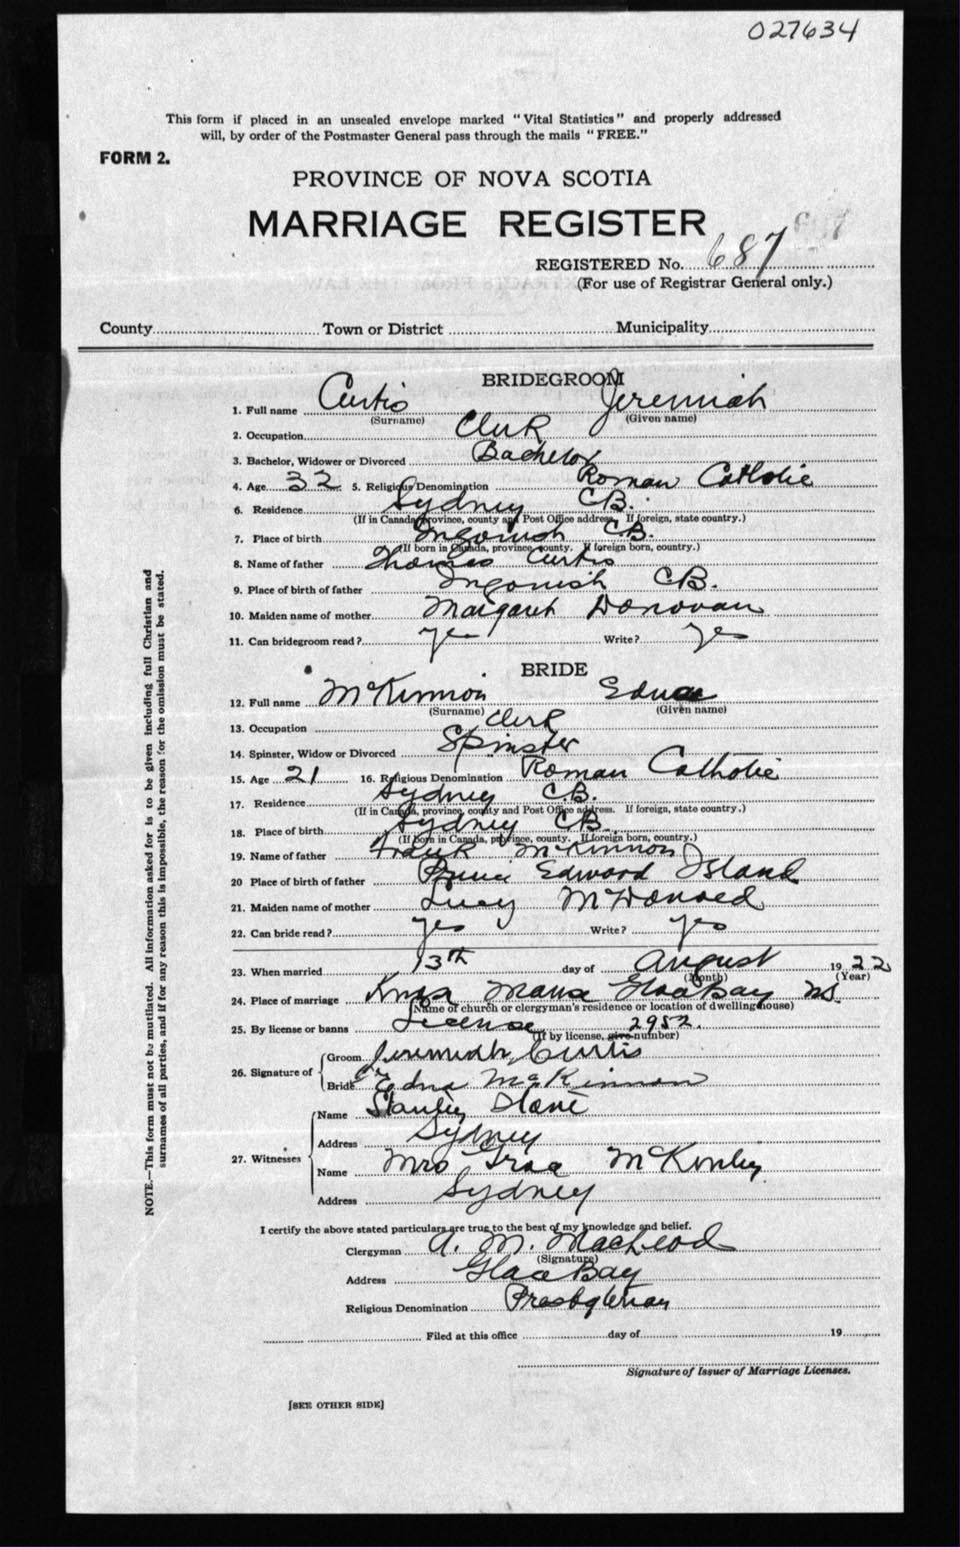 027634
This form if placed in an unsealed envelope marked "Vital Statistics" and properly addressed
will, by order of the Postmaster General pass through the mails "FREE."
FORM 2.
PROVINCE OF NOVA SCOTIA
MARRIAGE REGISTER
REGISTERED No. 687
(For use of Registrar General only.)
County Town or District Municipality
BRIDEGROOM
1. Full name Curtis Jeremiah
(Surname) (Given name)
2. Occupation Clerk
3. Bachelor, Widower or Divorced Bachelor
4. Age 32 5. Religious Denomination Roman Catholic
6. Residence Sydney C.B.
(If in Canada, province, county and Post Office address. If foreign, state country.)
7. Place of birth Ingonish C.B.
(If born in Canada, province, county. If foreign born, country.)
8. Name of father Thomas Curtis
9. Place of birth of father Ingonish C.B.
10. Maiden name of mother Margaret Donovan
11. Can bridegroom read? yes Write? yes
BRIDE
12. Full name McKinnon Edna
(Surname) (Given name)
13. Occupation Clerk
14. Spinster, Widow or Divorced Spinster
15. Age 21 16. Religious Denomination Roman Catholic
17. Residence Sydney C.B.
(If in Canada, province, county and Post Office address. If foreign, state country.)
18. Place of birth Sydney C.B.
(If born in Canada, province, county. If foreign born, country.)
19. Name of father Frank McKinnon
20 Place of birth of father Prince Edward Island
21. Maiden name of mother Lucy McDonald
22. Can bride read? yes Write? yes
23. When married 13th day of August 1922
(Month) (Year)
24. Place of marriage Knox Manse Glace Bay N.S.
(Name of church or clergyman's residence or location of dwelling house)
25. By license or banns License 2952.
(If by license, give number)
26. Signature of
Groom Jeremiah Curtis
Bride Edna McKinnon
27. Witnesses
Name Stanley
Address Sydney
Name Mrs McKinley
Address Sydney
I certify the above stated particulars are true to the best of my knowledge and belief.
Clergyman A. M. MacLeod
(Signature)
Address Glace Bay
Religious Denomination Presbyterian
Filed at this office day of 19
Signature of Issuer of Marriage Licenses.
[SEE OTHER SIDE]
NOTE.—This form must not be mutilated. All information asked for is to be given including full Christian and
surnames of all parties, and if for any reason this is impossible, the reason for the omission must be stated.